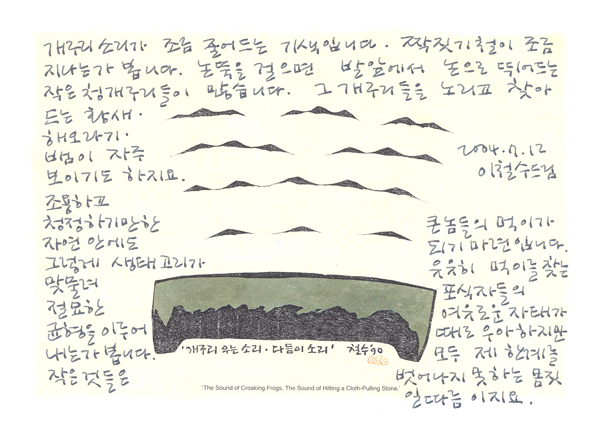 개구리 소리가 조금 줄어드는 기색입니다. 짝짓기철이 조금
지나는가 봅니다. 논뚝을 걸으면 발앞에서 논으로 뛰어드는
작은 청개구리들이 많습니다. 그 개구리들을 노리고 찾아
드는 황새·
해오라기·
뱀이 자주
보이기도 하지요.
조용하고
청정하기만한
자연 안에도
그렇게 생태고리가
맞물려
절묘한
균형을 이루어
나는가 봅니다.
작은것들은
큰놈들의 먹이가
되기 마련입니다.
유유히 먹이를 찾는
포식자들의
여유로운 자태가
때로 우아하지만
모두 제 한계를
벗어나지 못하는 몸짓
일따름 이지요.
2004.7.12
이철수드림
'개구리 우는 소리·다듬이 소리' 철수 '90
'The Sound of Croaking Frogs, The Sound of Hitting a Cloth-Pulling Stone.'